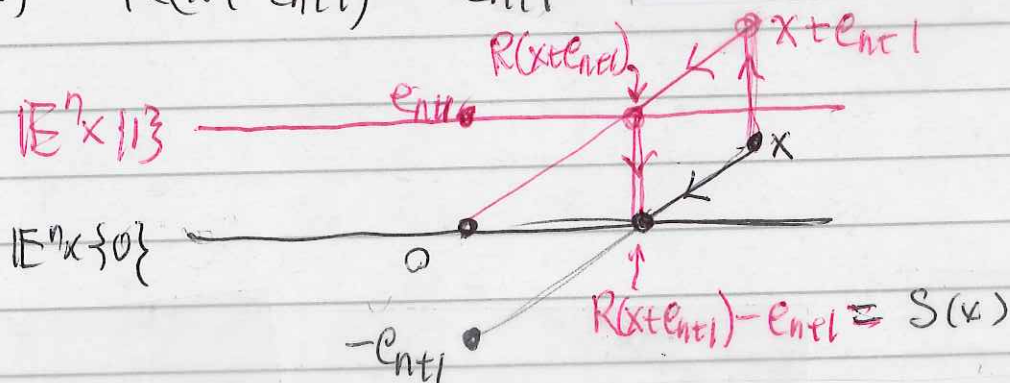 R(x+eₙ₊₁) x+eₙ₊₁
eₙ₊₁
𝔼ⁿ×{1}
x
𝔼ⁿ×{0}
0
R(x+eₙ₊₁)-eₙ₊₁ = S(x)
-eₙ₊₁